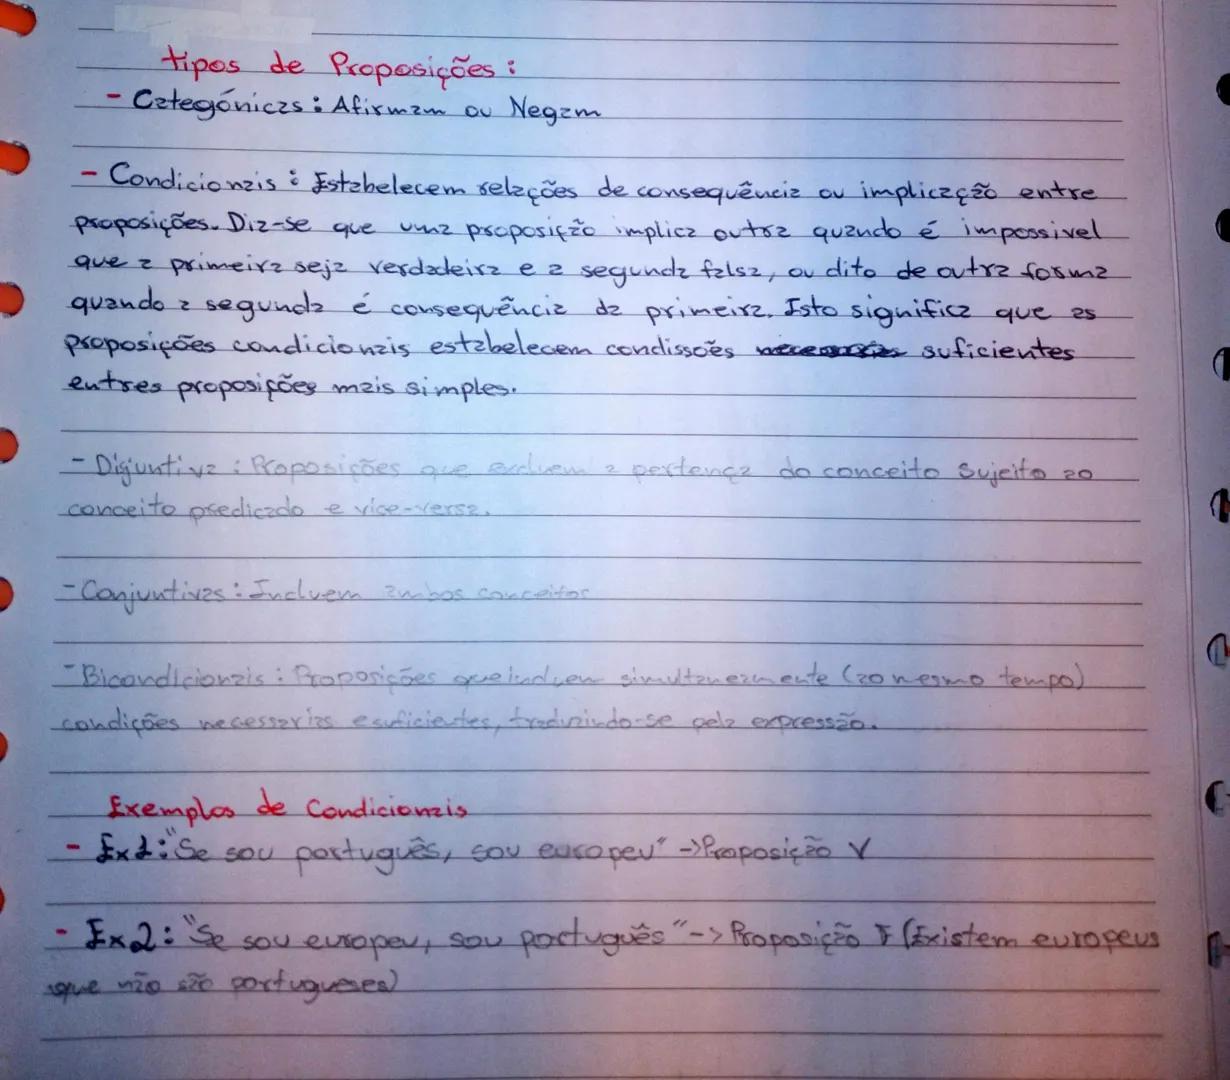 tipos de Proposições :
- Categóricas : Afirmam ou Negam
- Condicionais : Estabelecem relações de consequência ou implicação entre
proposições. Diz-se que uma proposição implica outra quando é impossivel
que a primeira seja verdadeira e a segunda falsa, ou dito de outra forma
quando a segunda é consequência da primeira. Isto significa que as
proposições condicionais estabelecem condissões suficientes
entres proposições mais simples.
- Disjuntiva : Proposições que excluem a pertença do conceito sujeito ao
conceito predicado e vice-versa.
- Conjuntivas : Incluem ambos conceitos
- Bicondicionais : Proposições que incluem simultaneamente (ao mesmo tempo)
condições necessarias e suficientes, traduzindo-se pela expressão.
Exemplos de Condicionais
- Ex1 : "Se sou português, sou europeu" -> Proposição V
- Ex2 : "Se sou europeu, sou português" -> Proposição F (Existem europeus
que não são portugueses)